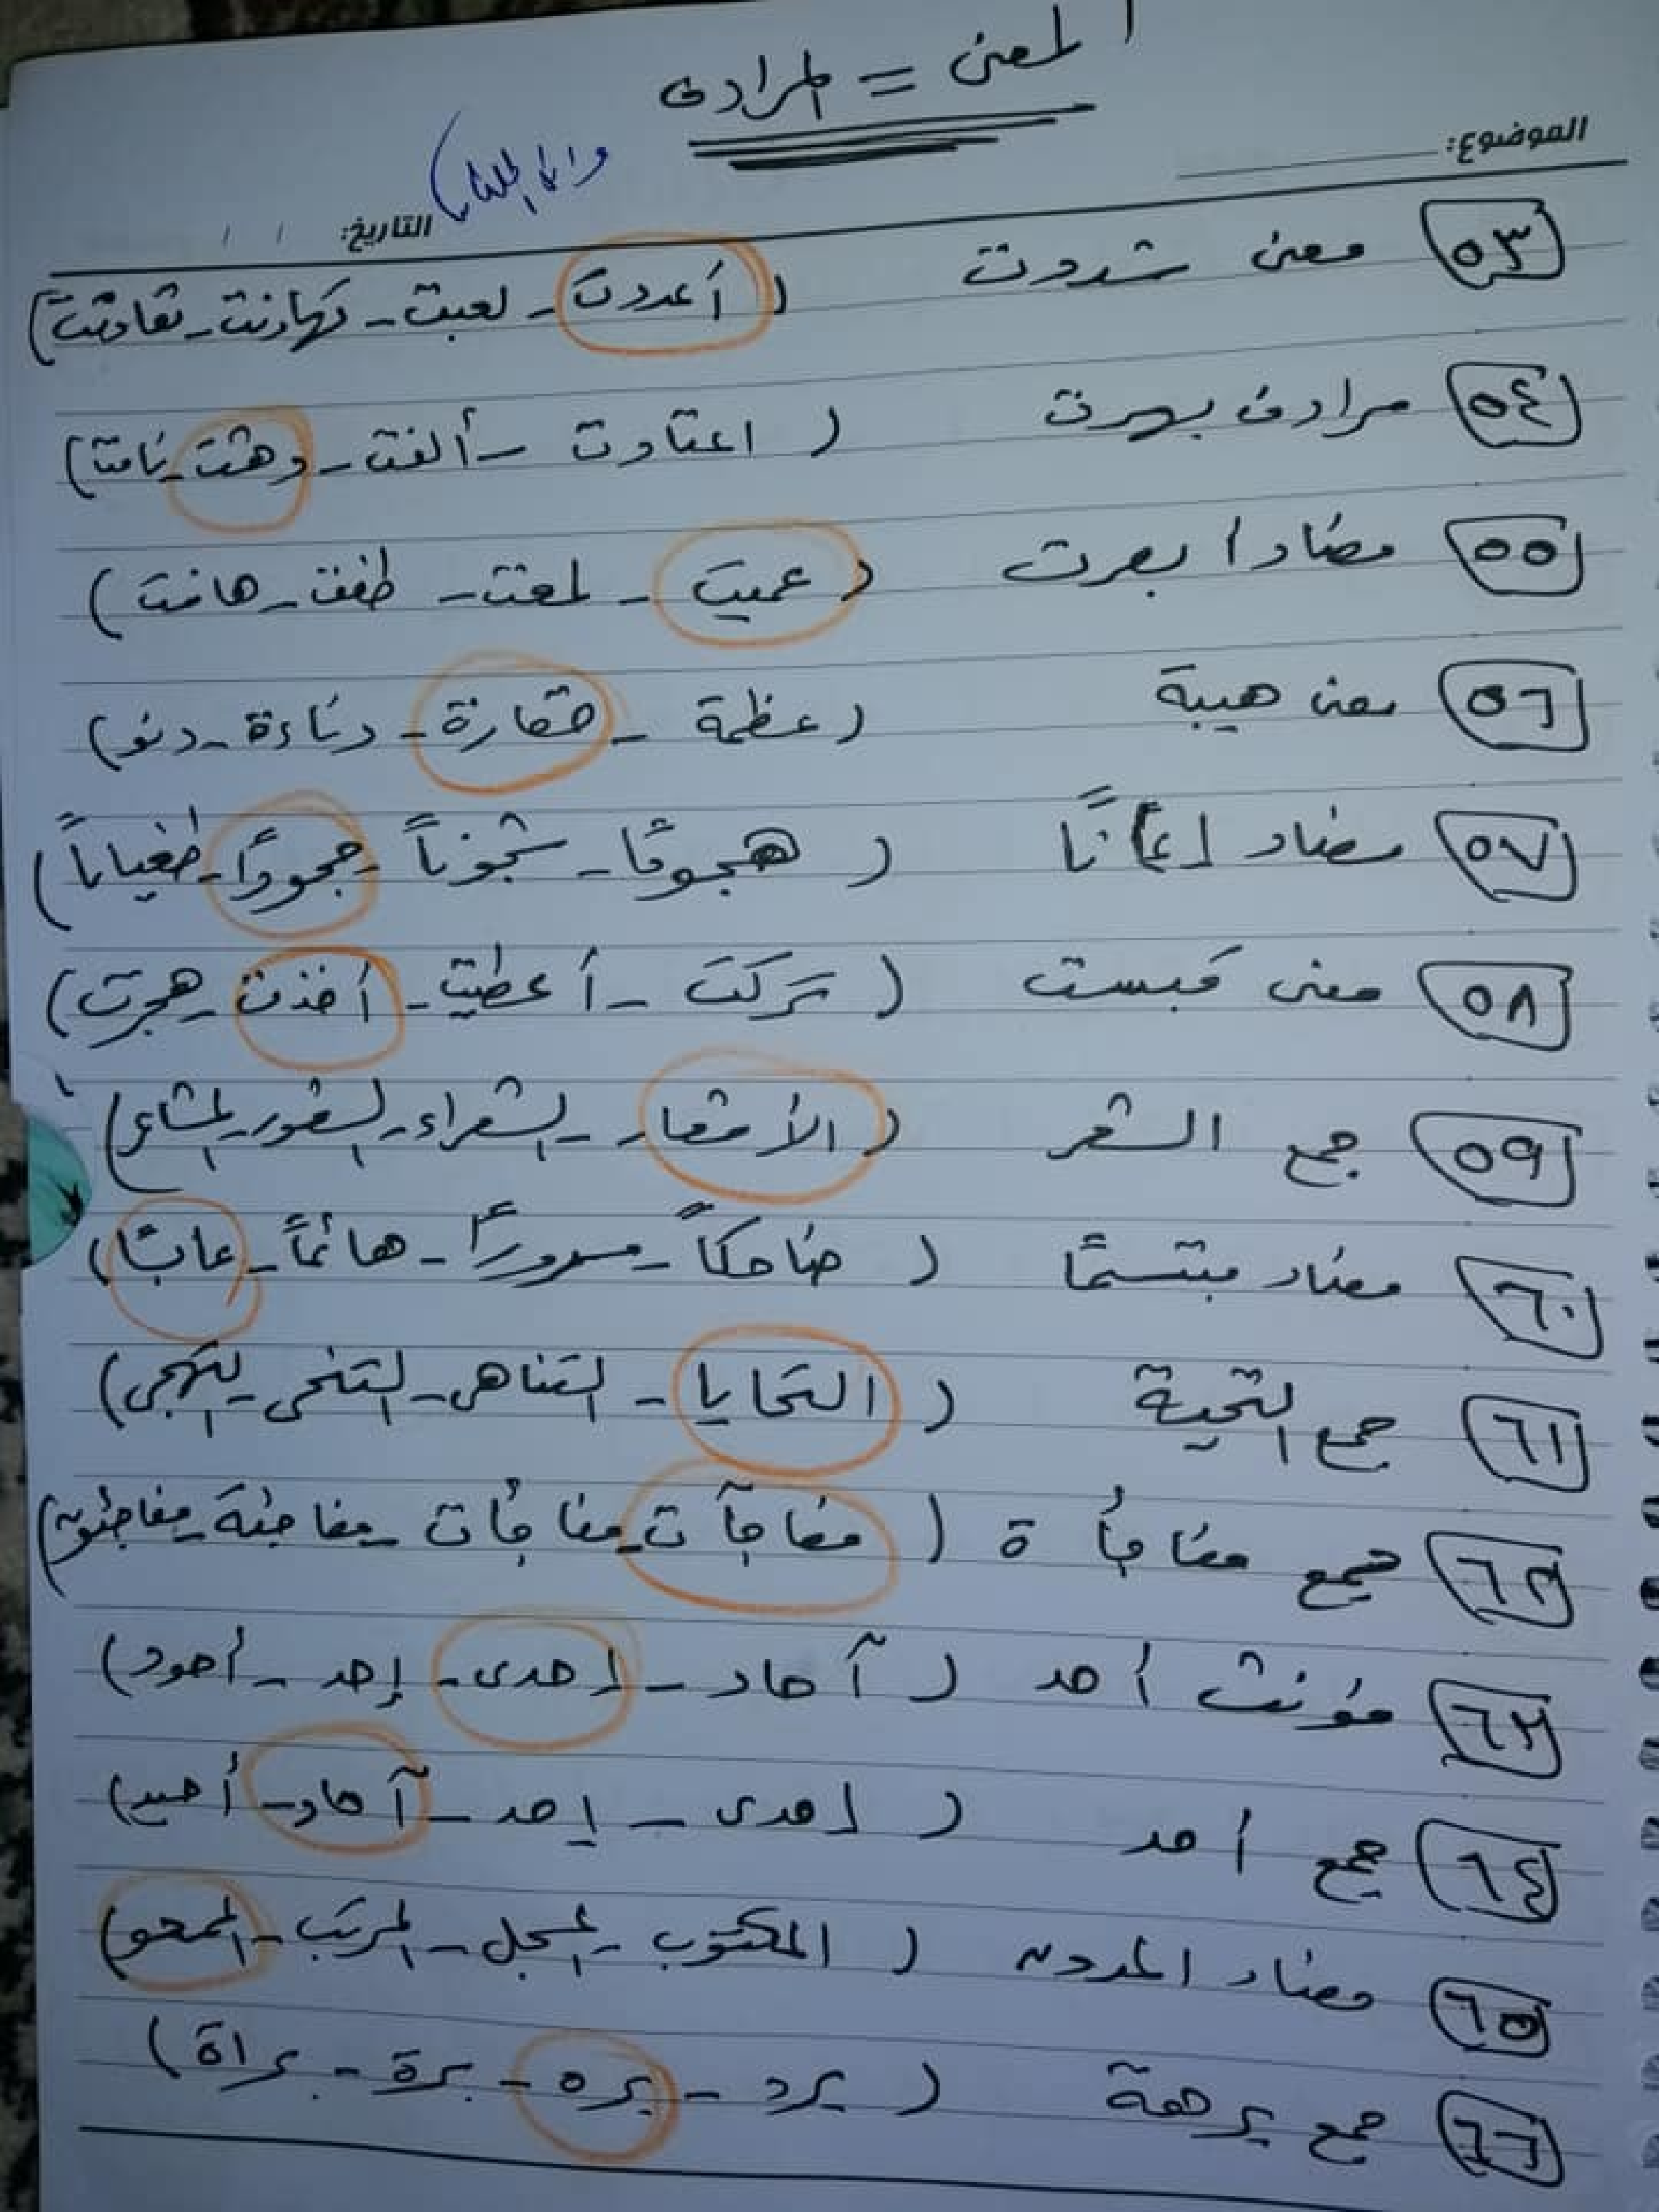 المعنى = المرادف
الموضوع:
التاريخ: / /
٥٣ معنى شددت ( أعددت - لعبت - تهاونت - تقاوت )
٥٤ مرادف بهرت ( اعتادت - ألفت - دهشت - نامت )
٥٥ مضاد ا بصرت ( عميت - لمعت - طفت - هانت )
٥٦ معنى هيبة ( عظمة - حقارة - دناءة - دنو )
٥٧ مضاد إيمانًا ( هجومًا - شجونًا - جحودًا - طغيانًا )
٥٨ معنى قبست ( تركت - أعطيت - أخذت - هجرت )
٥٩ جمع الشعر ( الأشعار - الشعراء - الشعور - المشاعر )
٦٠ مضاد مبتسمًا ( ضاحكًا - مسرورًا - هائمًا - عابسًا )
٦١ جمع التحية ( التحايا - التناهى - التنحى - التهجى )
٦٢ جمع مفاجأة ( مفاجآت - مفاجأت - مفاجئة - مفاجئون )
٦٣ مؤنث أحد ( آحاد - إحدى - إحد - أحود )
٦٤ جمع أحد ( إحدى - إحد - آحاد - أحيد )
٦٥ مضاد المدون ( المكتوب - المسجل - المرتب - الممحو )
٦٦ جمع برهة ( برد - بره - برة - براة )